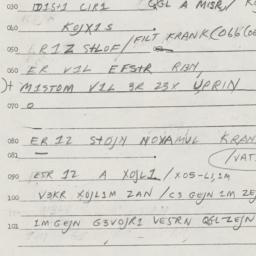 030 ID1S+1 CIR1 QGL A MISR/
040 KOJX1S
050 LR1Z S+LOF/FILT KRANK(O66
060 ER V1L EFSTR RBN,
)+ M1STOM V1L 3R 23Y UPRIN
070
080 ER 12 STOJN NOXAMUL KRAN
081 (/VAT
090 ESR 12 A XOJL1/X05-L1,1M
100 V3KR XOJL1M ZAN/C3 GEJN 1M ZEJ
101 1M GEJN G3VOJR1 VESRN QGL-ZEJN